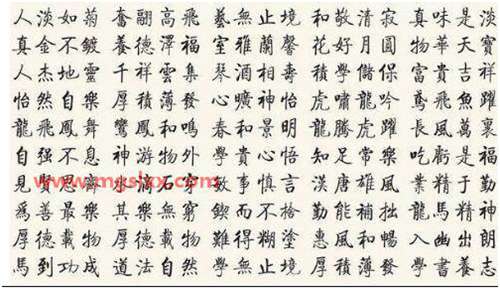 人淡如菊 奮翮高飛 藝無止境 和敬清寂 真味是淡
真金不鍍 養德澤福 室雅蘭馨 花好月圓 物華天寶
人杰地靈 千祥雲集 琴酒相壽 積學儲保 富貴吉祥
怡然自樂 厚積薄發 心曠神怡 虎嘯龍吟 鳶飛魚躍
龍飛鳳舞 鸞鳳和鳴 春和景明 龍騰虎躍 長風萬裏
自強不息 神游物外 學貴心悟 知足常樂 吃虧是福
見賢思齊 敏事慎言 漢唐雄風 業精于勤
爲善最樂 其樂無窮 鍥而不捨 勤能補拙 龍馬精神
厚德載物 難得糊塗 惠風和暢 入幽出朗
馬到功成 道法自然 學無止境 厚積薄發 學書養志